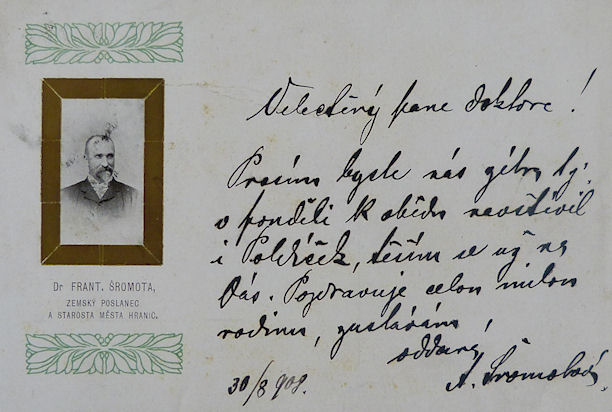 Dr FRANT. ŠROMOTA,
ZEMSKÝ POSLANEC
A STAROSTA MĚSTA HRANIC.
Velectěný pane doktore!
Prosím byste nás zítra tj.
v pondělí k obědu navštívil
i Poldíček, těším se už na
Vás. Pozdravuje celou milou
rodinu, zůstávám,
oddaný
A. Šromotová.
30/8 908.